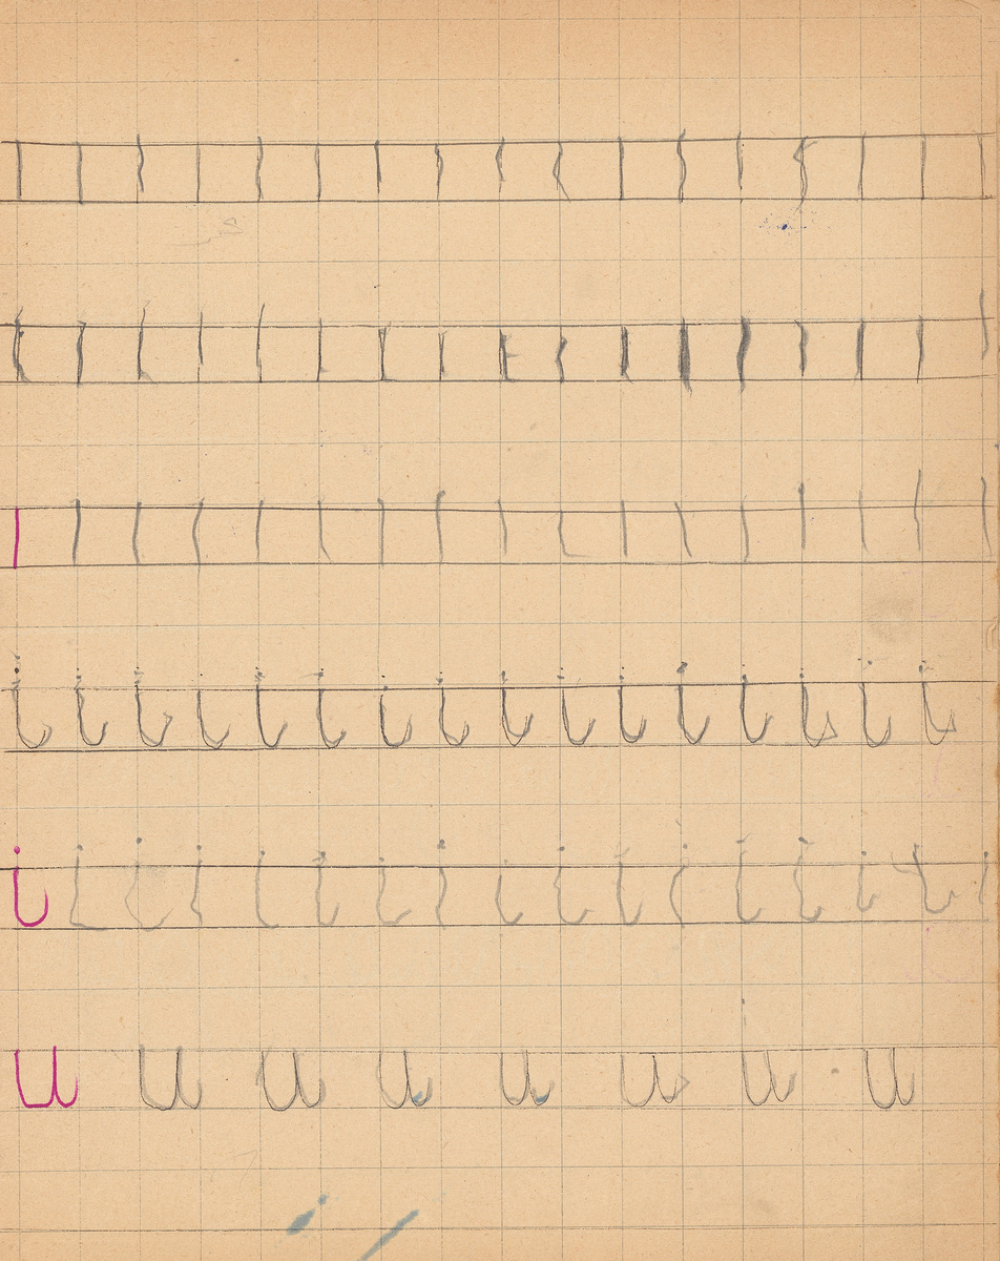 | | | | | | | | | | | | | | | | |
| | | | | | | | | | | | | | | | |
| | | | | | | | | | | | | | | | |
i i i i i i i i i i i i i i i i
i i i i i i i i i i i i i i i i i
u u u u u u u u